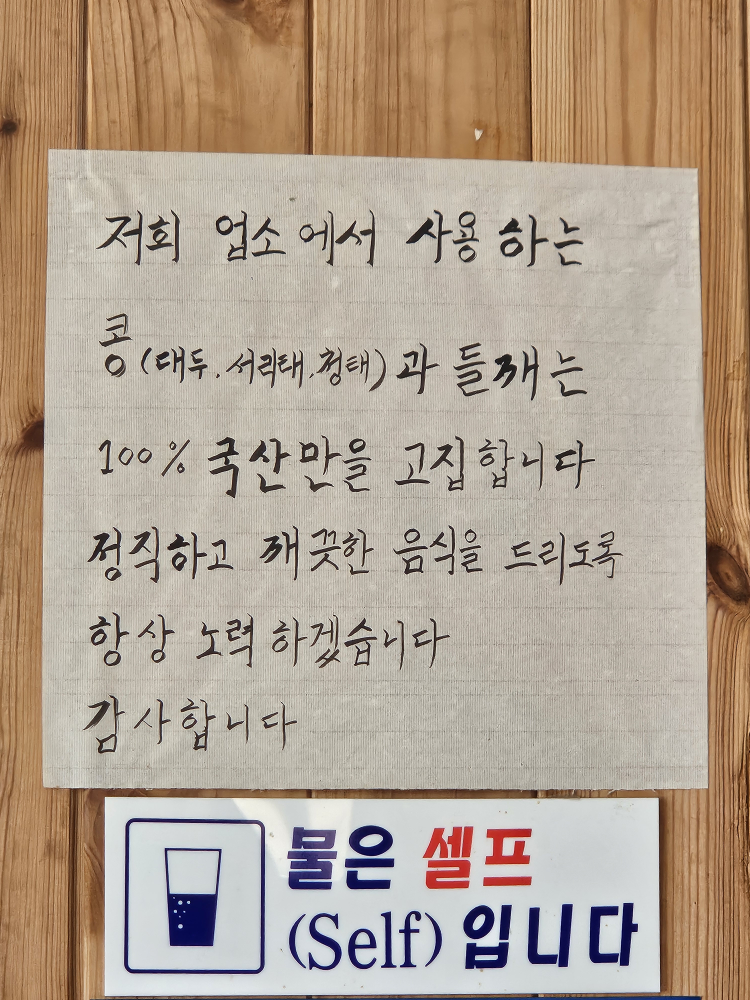 저희 업소에서 사용하는
콩(대두.서리태.청태)과 들깨는
100% 국산만을 고집합니다
정직하고 깨끗한 음식을 드리도록
항상 노력하겠습니다
감사합니다
물은 셀프
(Self)입니다